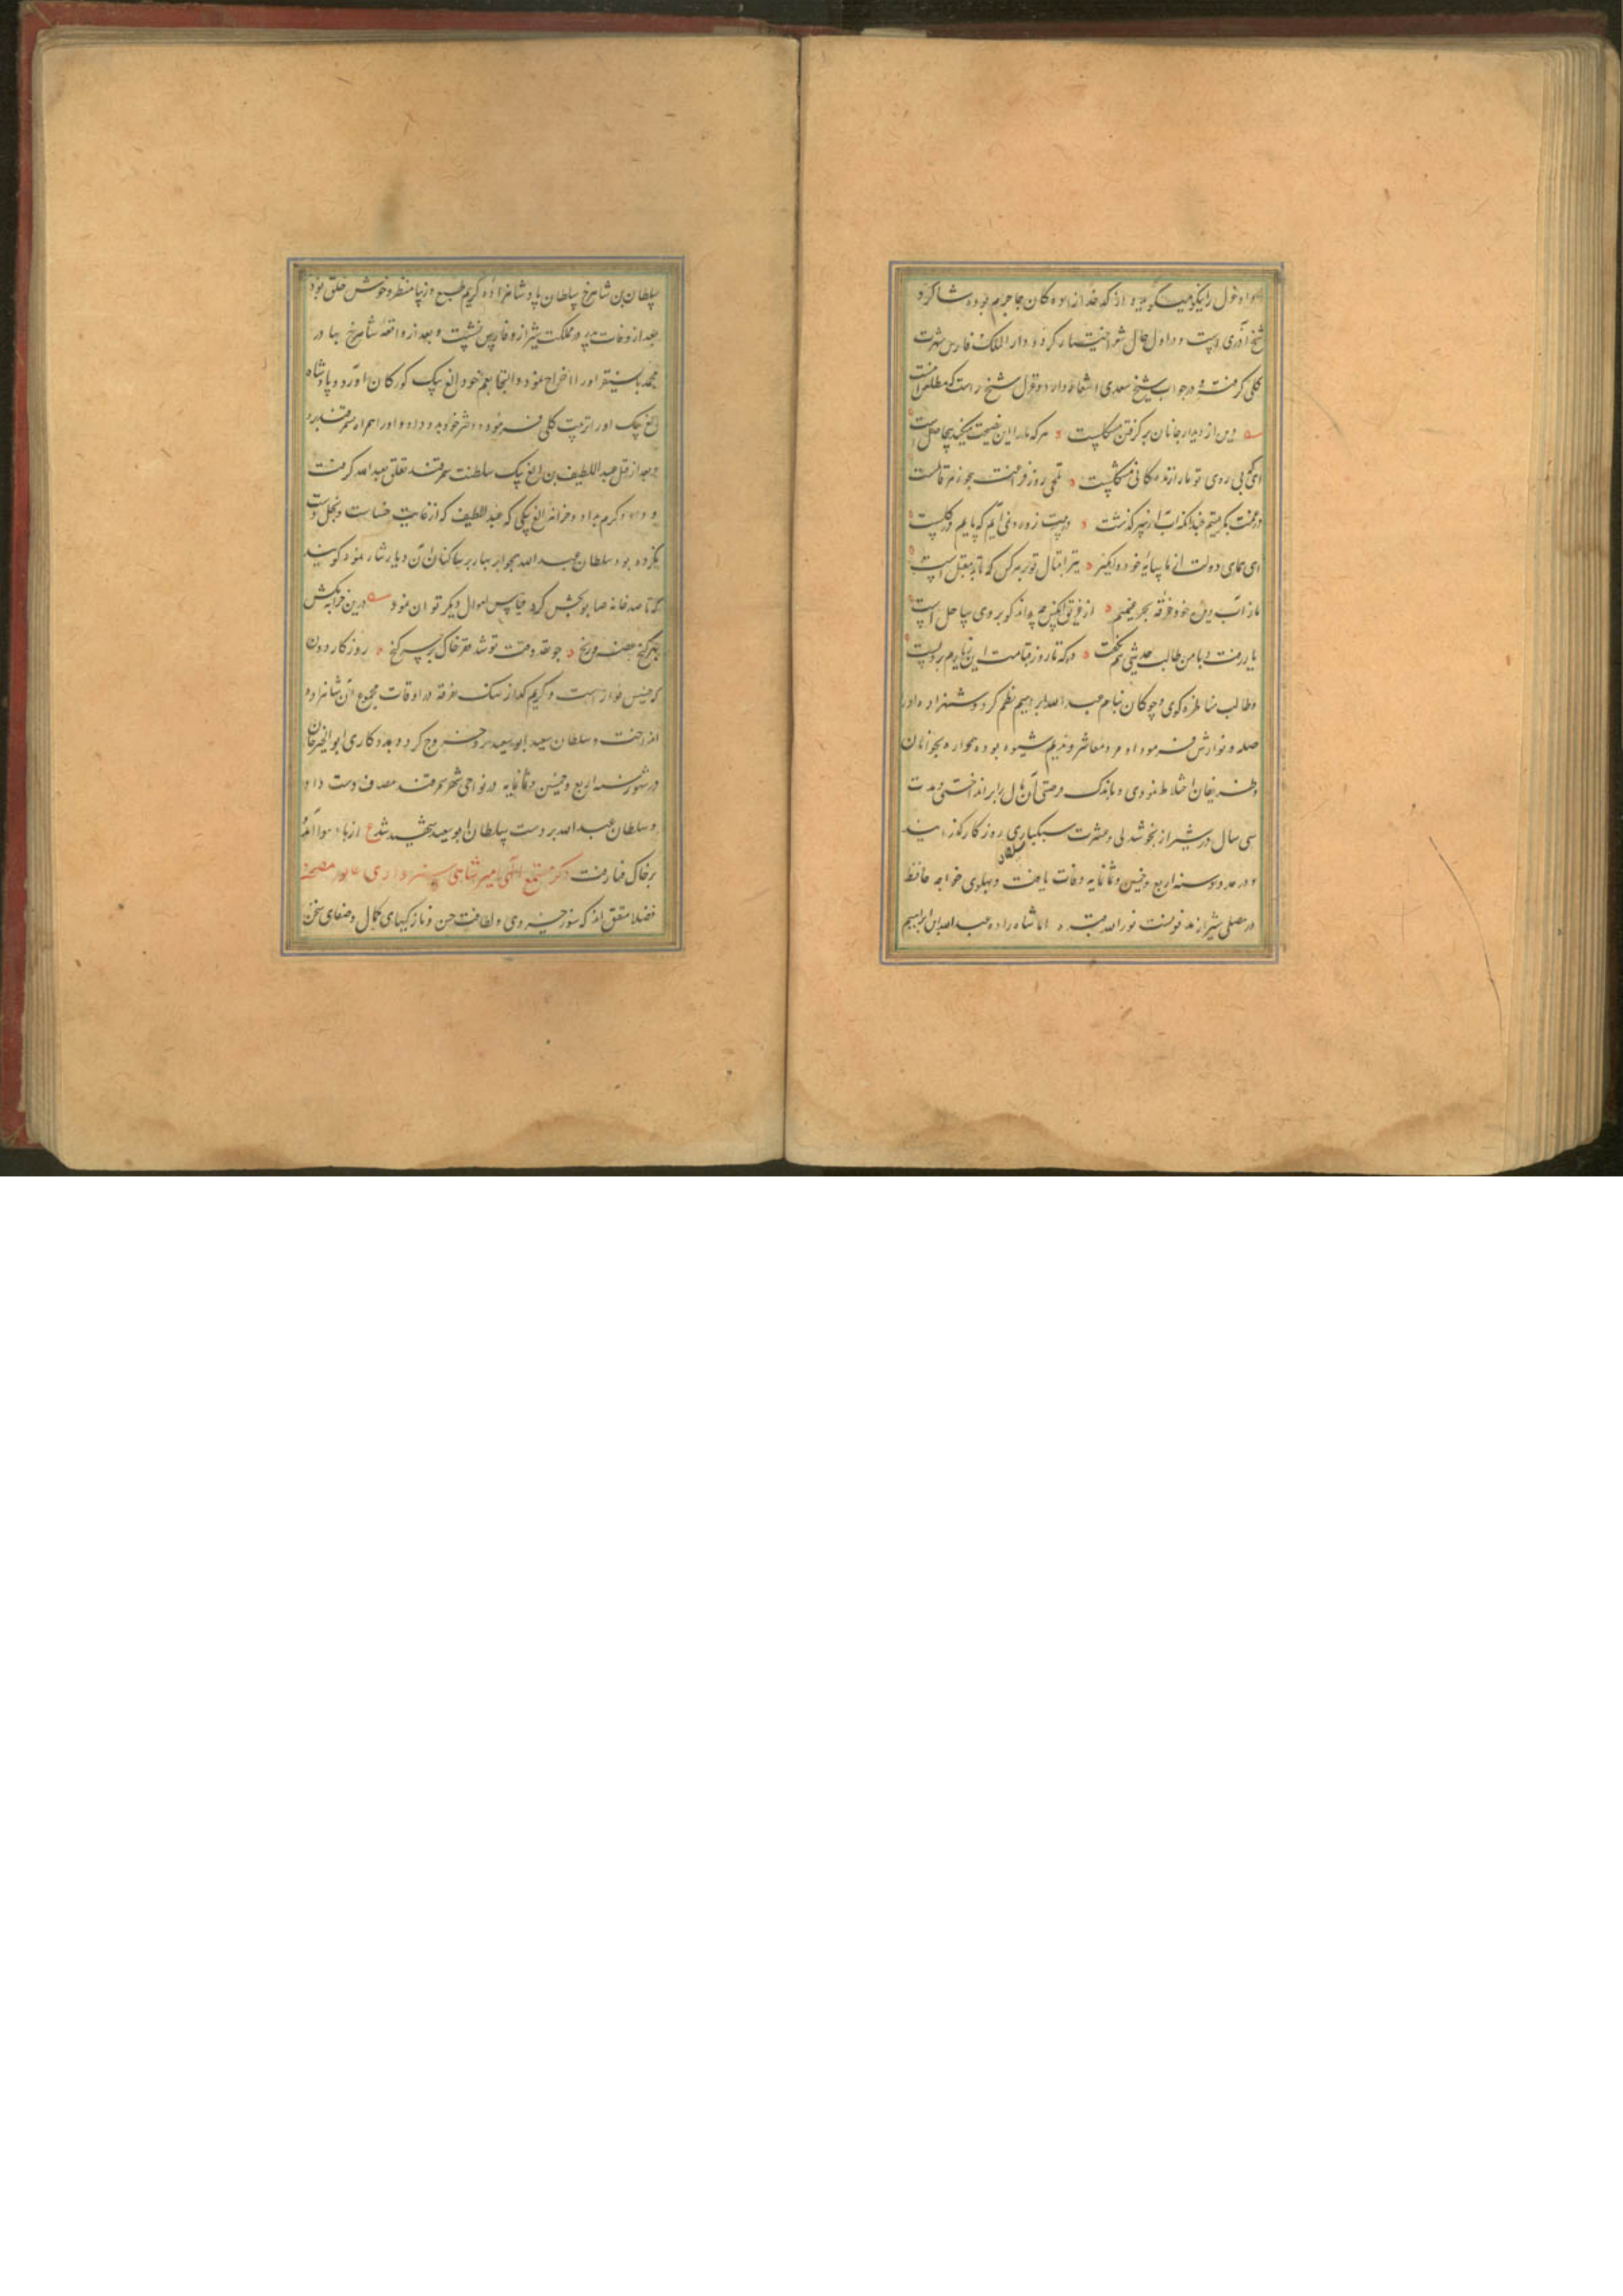 و او غزل را نیکو میگوید و از کدخدازادهکان جاجرم بوده شاکرد
شیخ آذری است و در اول حال شهرا ختیار کرده دار الملک فارس شهرت
کلی کرفت و در جواب شیخ سعدی اشعار دارد و غزل شیخ راست که مطلعش اینست
دین از دیدار جانان بر کرفتن مشکلست هر که ما را این نصیحت میکند بیحاصل است
ای که بی روی تو ما را زندکانی مشکلست تلخی روز فراقت همچو زهر قاتلست
در غمت بکریستم چندانکه آب از سر کذشت دوست زوره نمی آیم که پایم در کلست
ای همای دولت از ما سایهٔ خود وامکیر تیر اقبال تو بر هر کس که تابد مقبل است
ما ز آب دیده خود غرقه بحر غمیم از غریق این چه داند کو بروی ساحل است
یار رفت و با من طالب حدیثی هم نکفت وه که تا روز قیامت این زیارم بر دلست
و طالب مناظره کوی و چوکان بنام عبد الله ابراهیم نظم کرد و شهزاده او را
صله و نوازش فرمود و او مرد معاشر و ندیم شیوه بوده همواره بجوانان
و ظریفان اختلاط نمودی و باندک فرصتی آن مال را بر انداختی و مدت
سی سال در شیراز بخوشدلی و عشرت و سبکباری روزکار کذرانید
و در حدود سنه اربع و خمسین و ثمانمایه وفات یافت و بپهلوی خواجه حافظ
در مصلی شیراز مدفونست نور الله مرقده اما شاه زاده عبد الله بن ابراهیم
سلطان بن شاهرخ سلطان پادشاهزاده کریم طبع و زیبا منظر و خوش خلق بود
بعد از وفات پدر در مملکت شیراز و فارس نشست و بعد از واقعهٔ شاهرخ بهادر
محمد بایسنقر او را اخراج نمود و التجا بعم خود الغ بیک کورکان آورد و پادشاه
الغ بیک او را تربیت کلی فرمود و دختر خود بدو داد و او را همراه بسمرقند برد
و بعد از قتل عبد اللطیف بن الغ بیک سلطنت سمرقند تعلق بعبد الله کرفت
و داد و کرم بداد و خزانهٔ الغ بیکی که عبد اللطیف که از غایت خساست و بخل دست
نکرده بود سلطان عبد الله بجوابر بهار بر ساکنان آن دیار نثار نمود کویند
که تا صد خانه صابو بخش کرد قیاس اموال دیکر توان نمود درین خرابه مکش
بهر کنج غصه و رنج چو نقد وقت تو شد فقر خاک بر سر کنج روزکار دون
که خسیس نواز است و کریم کداز سنک تفرقه در اوقات مجموع آن شاهزاده
انداخت و سلطان سعید ابو سعید برو خروج کرد و بمددکاری ابو الخیر خان
در شهور سنه اربع و خمسین و ثمانمایه در نواحی شهر سمرقند مصاف دست داد
و سلطان عبد الله بر دست سلطان ابو سعید شهید شد ع از باد هوا آمد
بر خاک فنا رفت ذکر مطلع اللهی امیر شاهی سبزواری نور مضجعه
فضلا متفق اند که سوز خسروی و لطافت حسن و نازکیهای کمال و صفای سخن